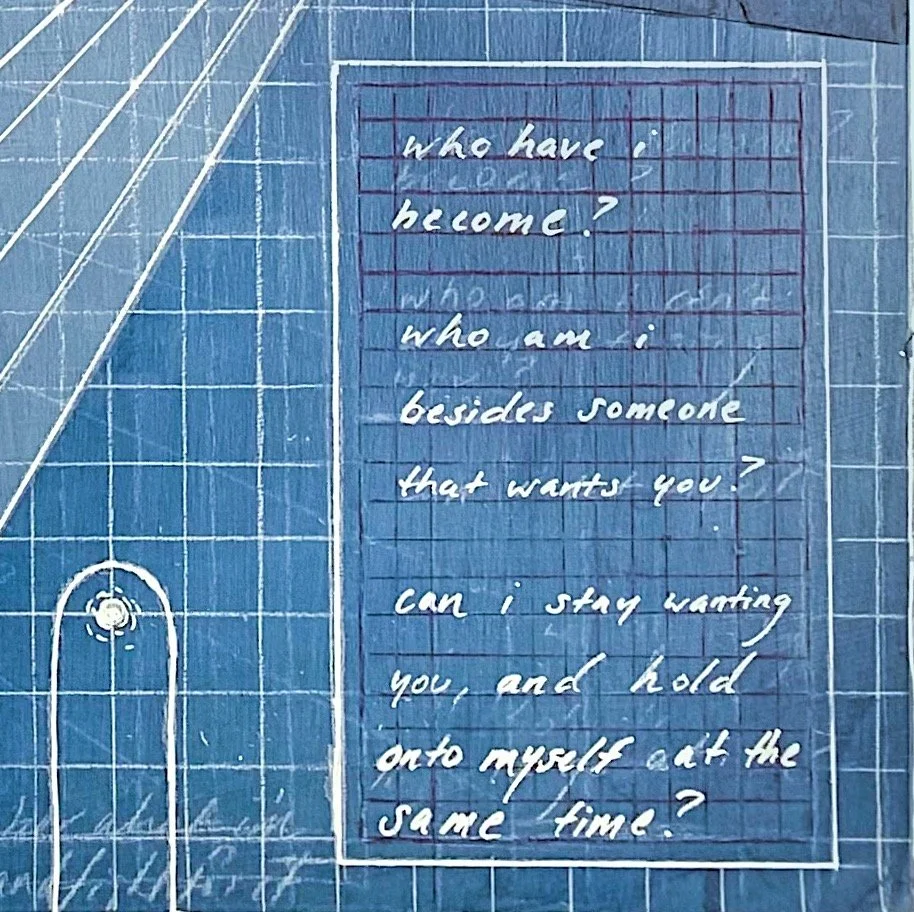 who have i
become?
who am i
besides someone
that wants you?
can i stay wanting
you, and hold
onto myself at the
same time?